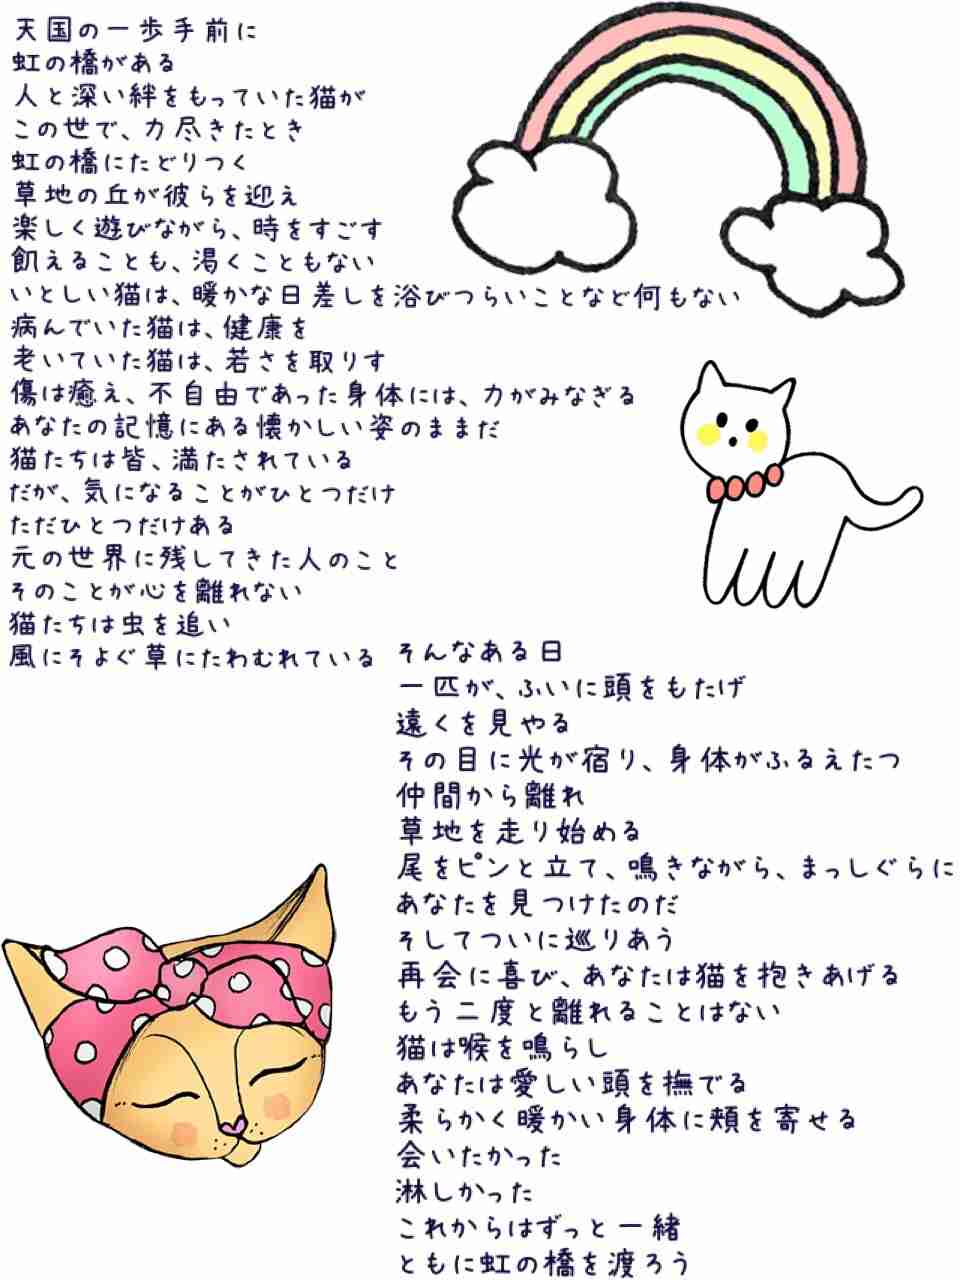 天国の一歩手前に
虹の橋がある
人と深い絆をもっていた猫が
この世で、力尽きたとき
虹の橋にたどりつく
草地の丘が彼らを迎え
楽しく遊びながら、時をすごす
飢えることも、渇くこともない
いとしい猫は、暖かな日差しを浴びつらいことなど何もない
病んでいた猫は、健康を
老いていた猫は、若さを取りす
傷は癒え、不自由であった身体には、力がみなぎる
あなたの記憶にある懐かしい姿のままだ
猫たちは皆、満たされている
だが、気になることがひとつだけ
ただひとつだけある
元の世界に残してきた人のこと
そのことが心を離れない
猫たちは虫を追い
風にそよぐ草にたわむれている
そんなある日
一匹が、ふいに頭をもたげ
遠くを見やる
その目に光が宿り、身体がふるえたつ
仲間から離れ
草地を走り始める
尾をピンと立て、鳴きながら、まっしぐらに
あなたを見つけたのだ
そしてついに巡りあう
再会に喜び、あなたは猫を抱きあげる
もう二度と離れることはない
猫は喉を鳴らし
あなたは愛しい頭を撫でる
柔らかく暖かい身体に頬を寄せる
会いたかった
淋しかった
これからはずっと一緒
ともに虹の橋を渡ろう